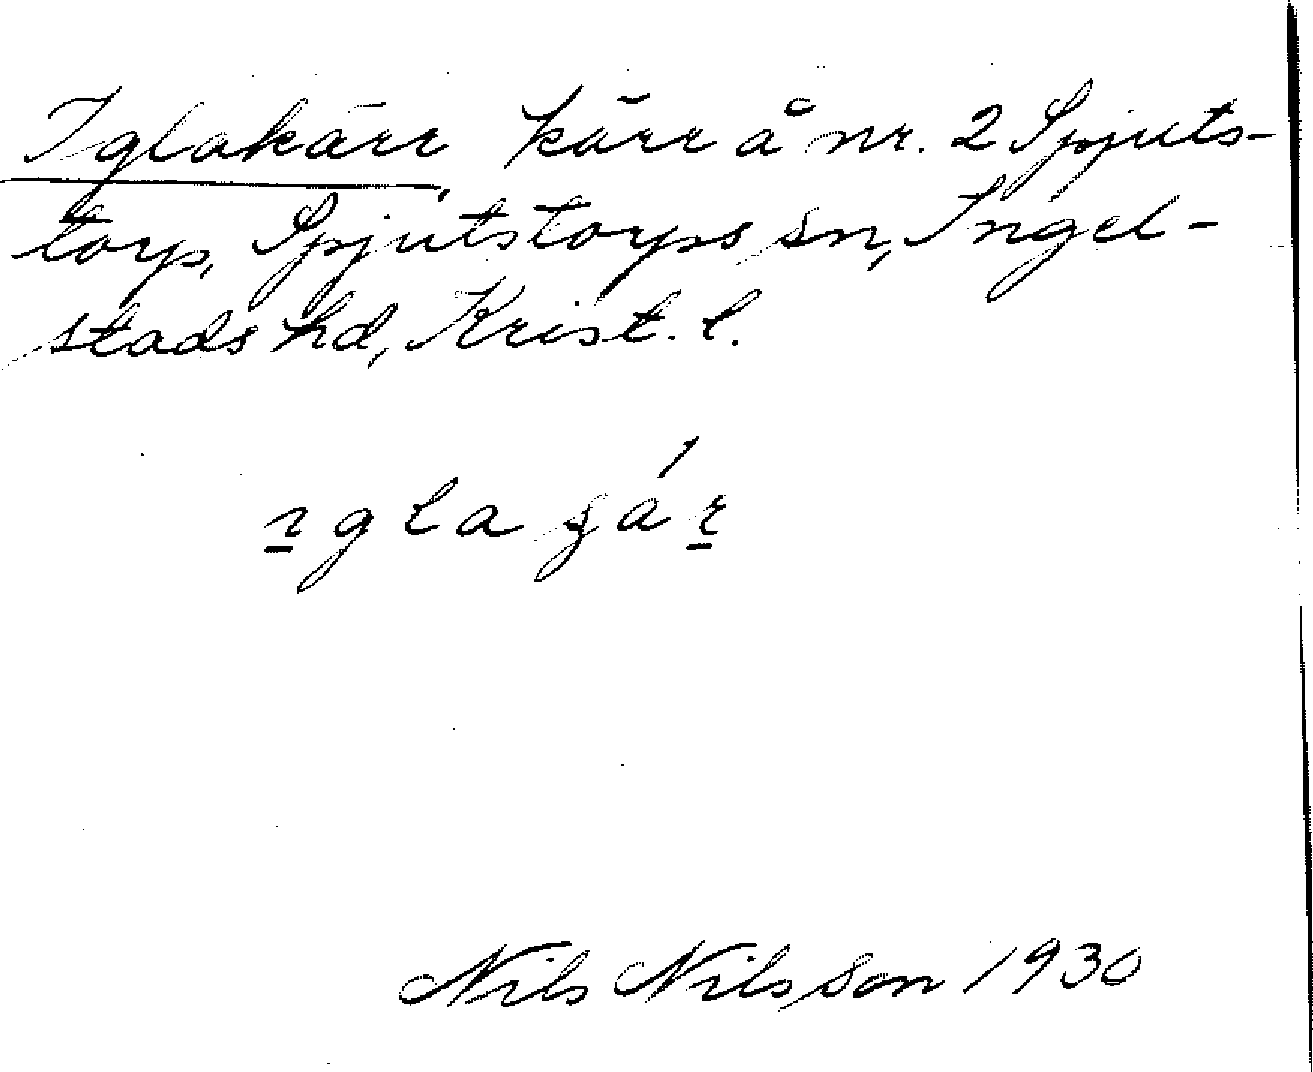 Iglakärr, kärr å nr. 2 Spjuts-
torp, Spjutstorps sn, Ingel-
stads hd, Krist. l.
Nils Nilsson 1930